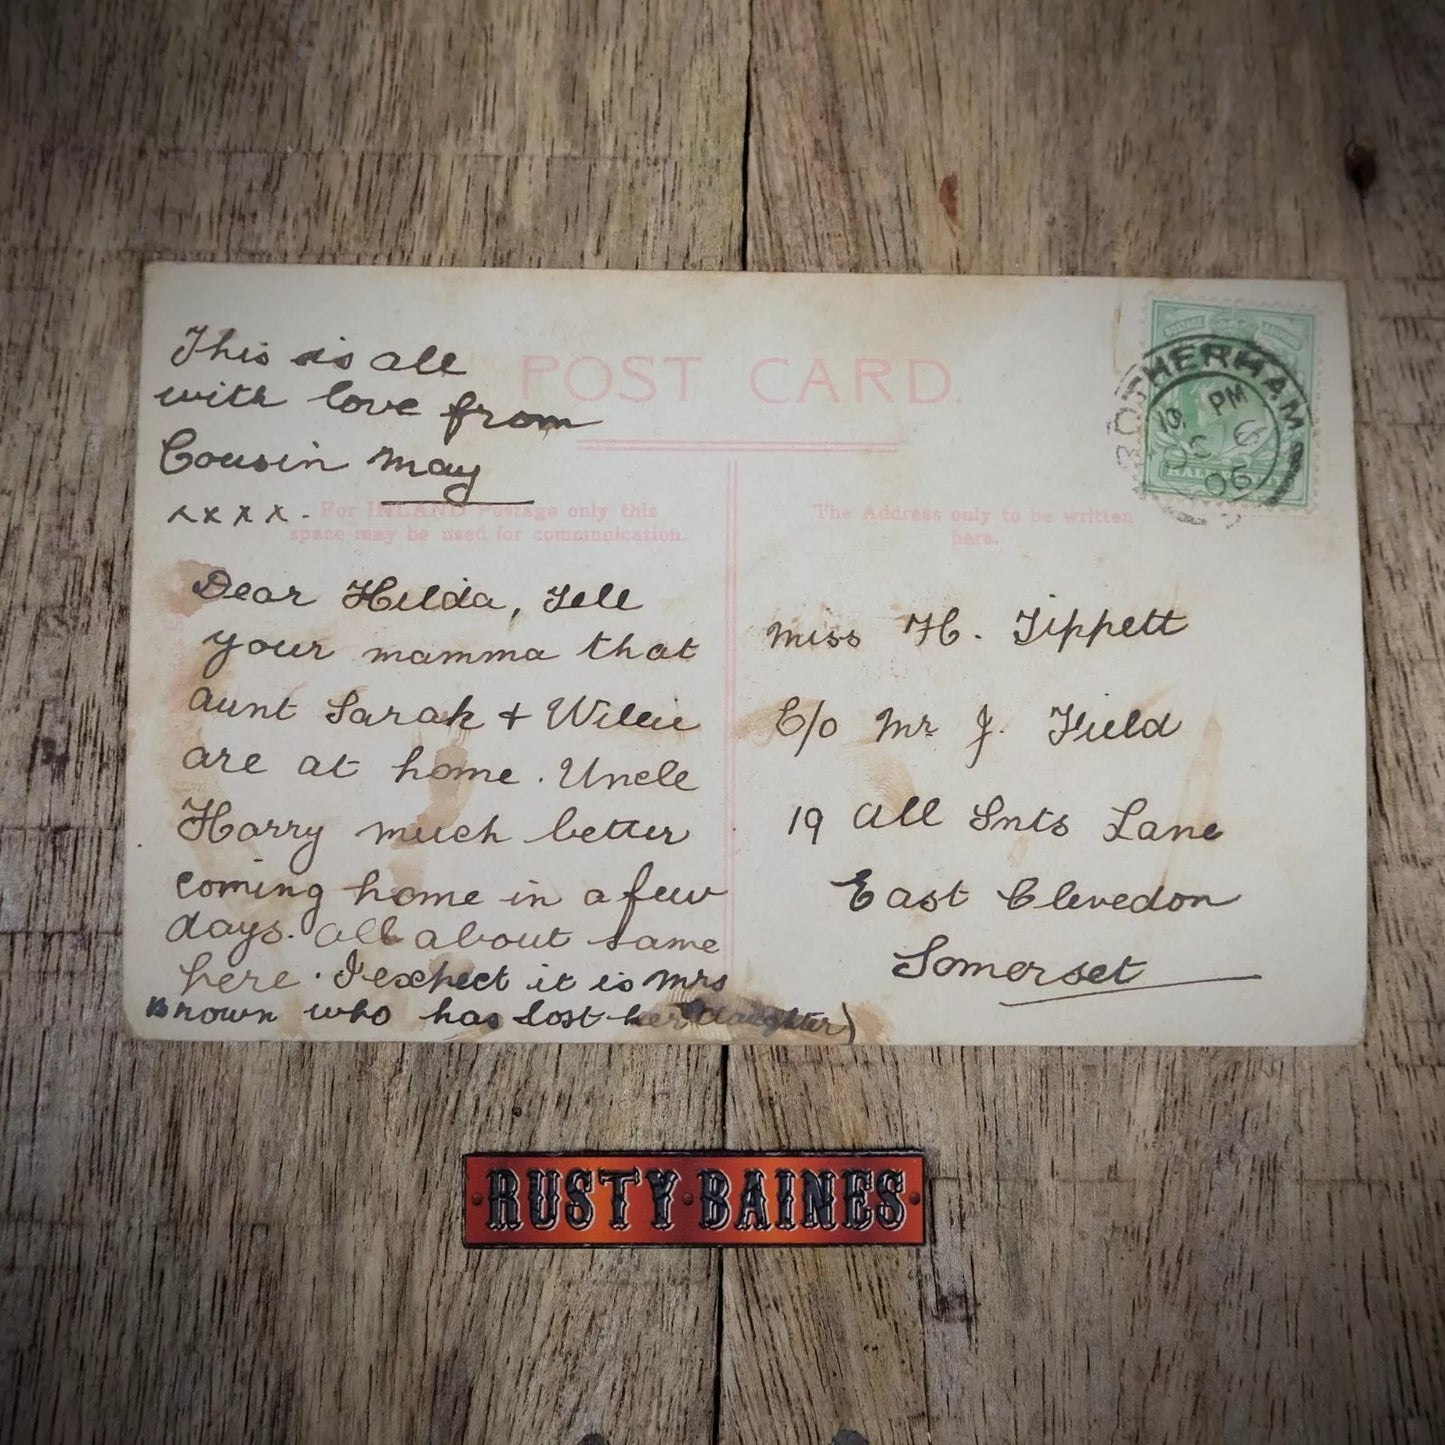 POST CARD.
For INLAND Postage only this
space may be used for communication.
The Address only to be written
here.
POSTAGE
ROTHERHAM
PM
OC 6
06
This is all
with love from
Cousin May
xxxx.
Dear Hilda, Tell
your mamma that
aunt Sarah + Willie
are at home. Uncle
Harry much better
coming home in a few
days. All about same
here. I expect it is Mrs
Brown who has lost her daughter)
Miss H. Tippett
C/o Mr J. Field
19 All Snts Lane
East Clevedon
Somerset
RUSTY·BAINES